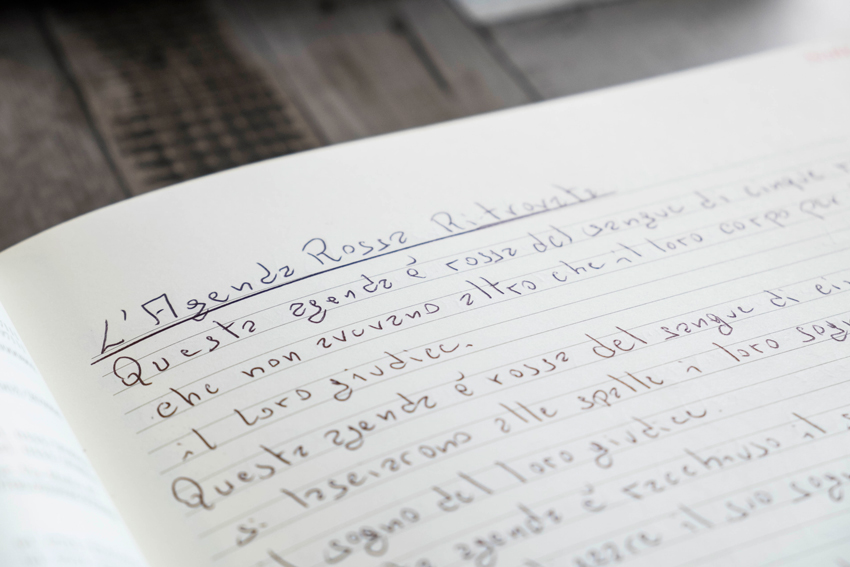 L'Agenda Rossa Ritrovata
Questa agenda è rossa del sangue di cinque
che non avevano altro che il loro corpo per
il loro giudice.
Questa agenda è rossa del sangue di
si lasciarono alle spalle i loro
sogno del loro giudice.
agenda è racchiuso il
il suo